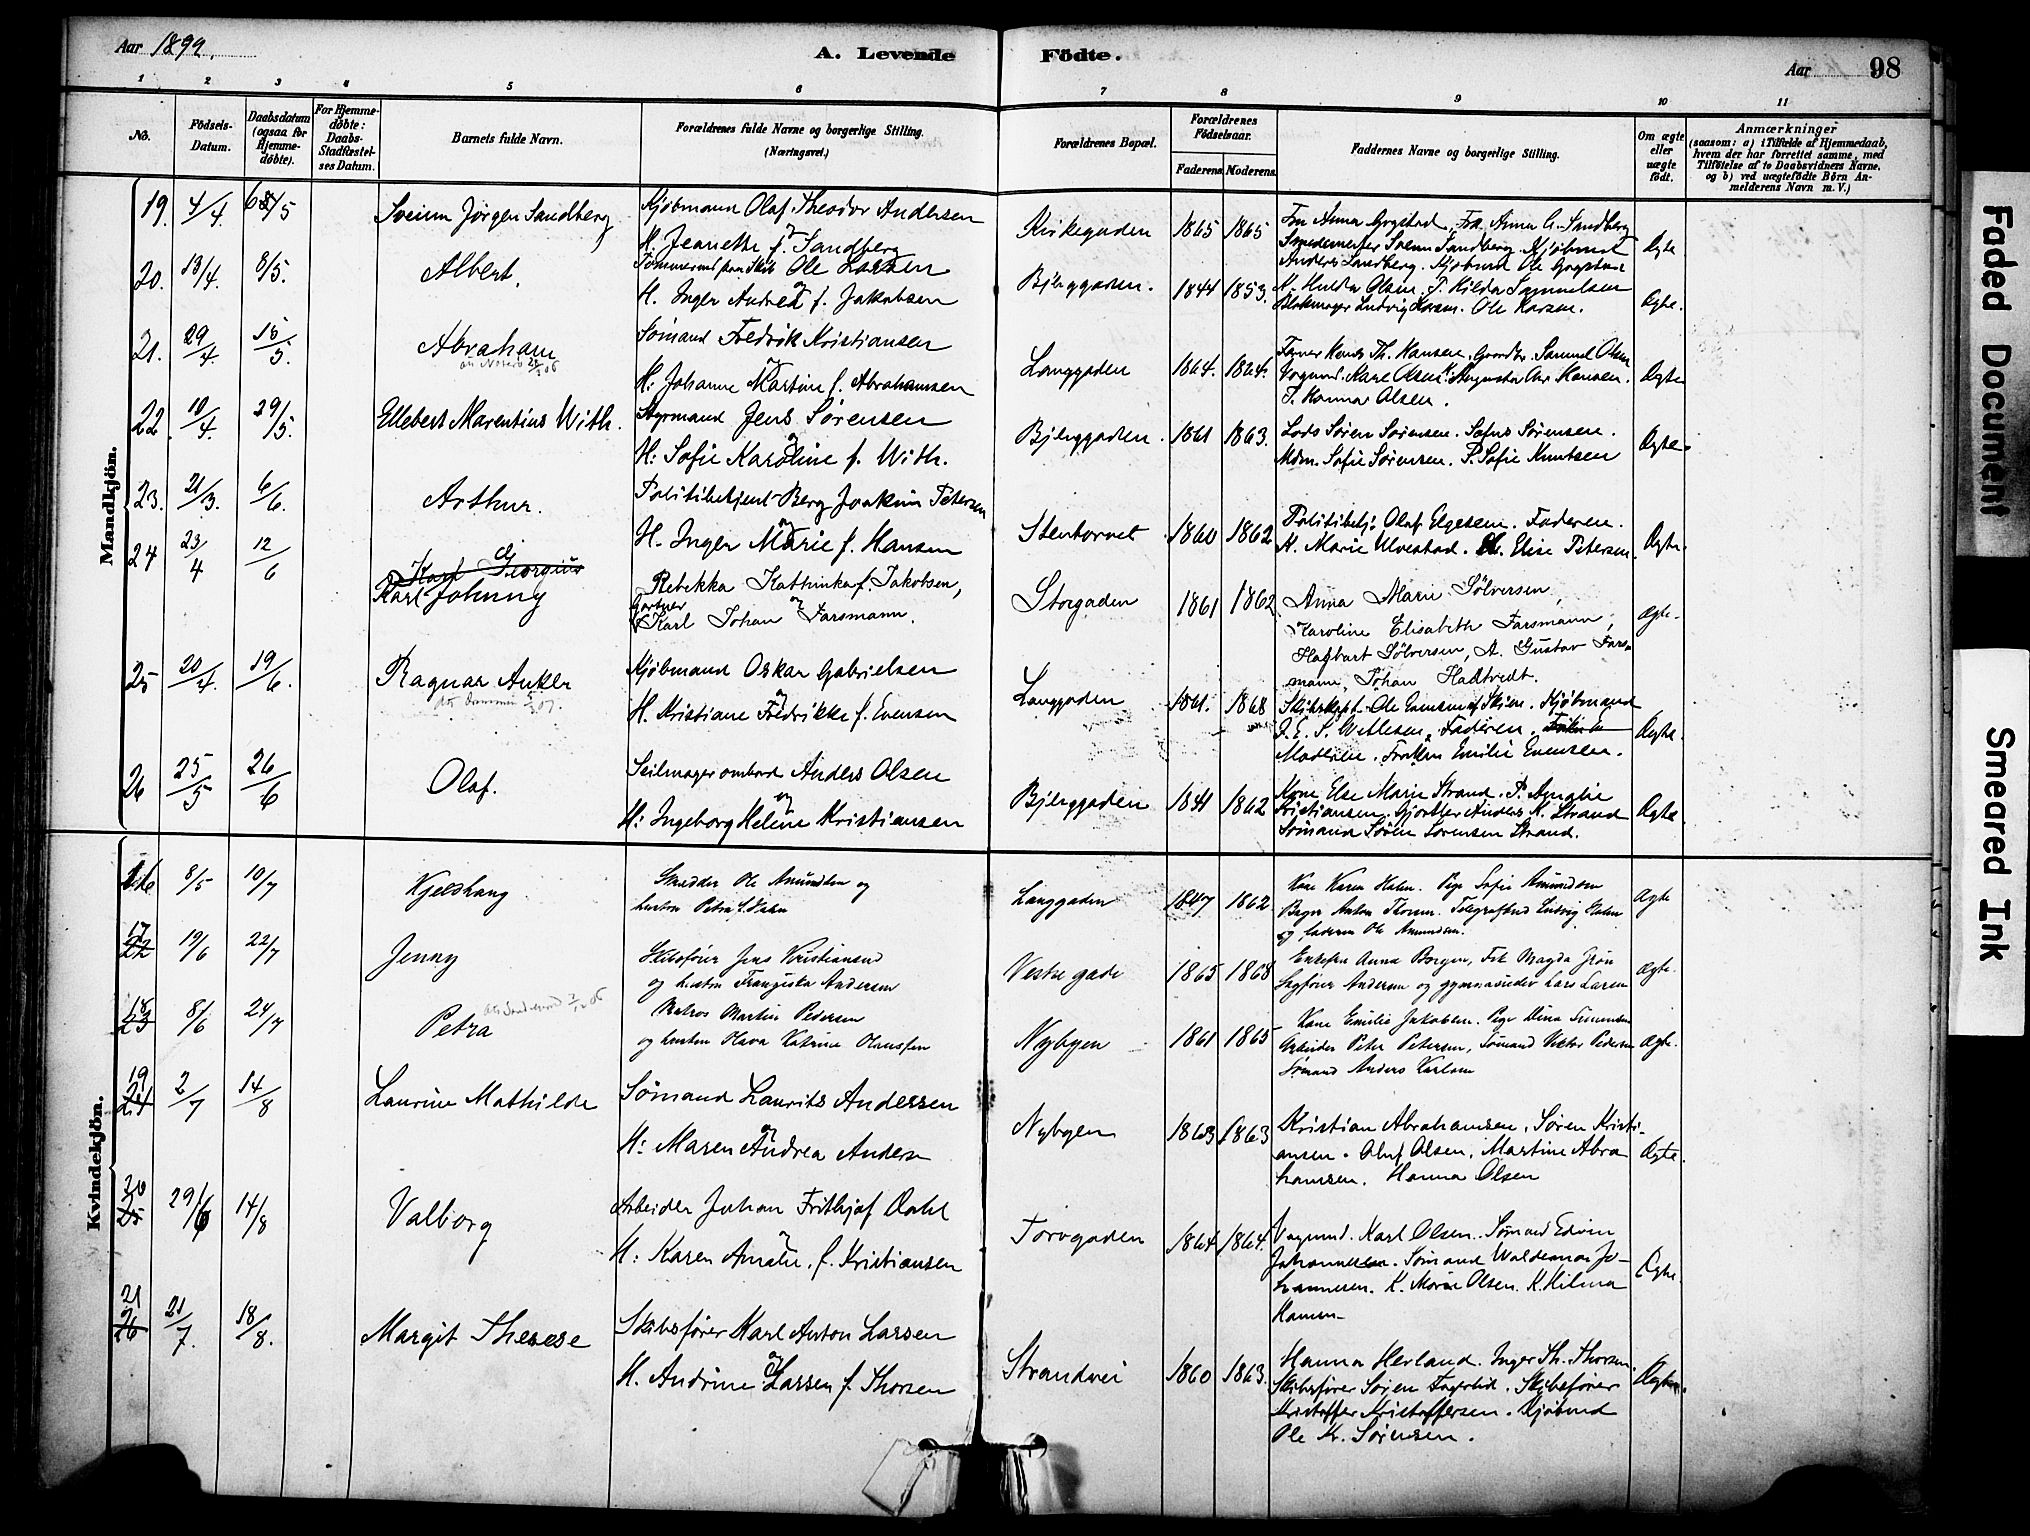 Aar 1892.
A. Levende Födte.
Aar
98
1 2 3 4 5 6 7 8 9 10 11
No.
Födsels-Datum.
Daabsdatum (ogsaa for Hjemmedöbte).
For Hjemmedöbte: Daabs-Stadfæstelses Datum.
Barnets fulde Navn.
Forældrenes fulde Navne og borgerlige Stilling. (Næringsvei.)
Forældrenes Bopæl.
Forældrenes Födselsaar.
Faderens Moderens
Faddernes Navne og borgerlige Stilling.
Om ægte eller uægte födt.
Anmærkninger
(saasom: a) i Tilfælde af Hjemmedaab, hvem der har forrettet samme, med Tilföielse af to Daabsvidners Navne, og b) ved uægtefödte Börn Anmelderens Navn m. V.)
Mandkjön.
19. 4/4. Sveinn Jörgen Sandberg
Kjöbmann Olaf Theodor Andersen
og
H. Jeanette f. Sandberg
Kirkegaden 1865 1865
Anders Sandberg. Kjöbmd Ole Gogstad
Ægte
20. 13/4. 8/5. Albert.
Ole Larsen
og
H. Inger Andrea f. Jakobsen
Bjerggaden. 1844 1853.
H. Hulda Olsen. P. Hilda Samuelsen
Ludvig Larsen. Ole Larsen.
Ægte.
21. 29/4. 15/5. Abraham
Sømand Fredrik Kristiansen
og
H: Johanne Martine f. Abrahamsen
Langgaden 1864. 1864.
Samuel Olsen
Vognmd. Karl Olsen. Augusta Hansen.
P. Hanna Olsen.
Ægte
22. 10/4. 29/5. Ellebert Marentius With.
Styrmand Jens Sørensen
og
H: Sofie Karoline f. With.
Bjerggaden. 1861 1863.
Lods Søren Sørensen. Sofus Sørensen.
Mdm. Sofie Sørensen. P. Sofie Knutsen
Ægte
23. 21/3. 6/6. Arthur.
Politibetjent Berg Joakim Petersen
og
H. Inger Marie f. Hansen
Stentorvet 1860 1862
Politibetj. Olaf Elgesem. Faderen.
H. Marie Ulvestad. Elise Petersen.
Ægte.
24 23/4 12/6 Karl Georgius
Karl Johnny
Rebekka Kathinka f. Jakobsen,
og
Gartner Karl Johan Farsmann.
Storgaden 1861 1862
Anna Marie Sölversen,
Karoline Elisabeth Farsmann,
Hagbart Sölversen, A. Gustav Fars-
mann, Johan Hadtvedt.
Ægte
25 20/4. 19/6. Ragnar Anker
Kjöbmand Oskar Gabrielsen
og
H. Kristiane Fredrikke f. Evensen
Langgaden 1861. 1868
Skibskapt. Ole Evensen Skien. Kjöbmand
Faderen.
Moderen. Frøken Emilie Evensen.
Ægte.
26 25/5 26/6 Olaf.
Seilmager ombord Anders Olsen
og
H: Ingeborg Helene Kristiansen
Bjerggaden 1841 1862
Kone Else Marie Strand. P. Amalie
Kristiansen. Gjørtler Anders K. Strand
Sømand Søren Sørensen Strand.
Ægte
Kvindekjön.
16 8/5 10/7 Kjelshaug
Skrædder Ole Amundsen og
hustru Petra f. Holm
Langgaden 1847 1862
Kone Karen Holm. Pige Sofie Amundsen
Bager Anton Thorsen. Telegrafbud Ludvig Holm
og faderen Ole Amundsen.
Ægte
17 22 19/6 22/7 Jenny
Skibsfører Jens Kristiansund
og hustru Franziska Andersen
Vestre gade 1865 1868
Enkefru Anna Borgen, Frk Magda Grøn
Sagfører Andersen og gymnasiedev Lars Larsen
Ægte.
18 23 8/6 24/7 Petra
Matros Martin Pedersen
og hustru Hava Katrine Olaussen
Nybyen 1861 1865
Kone Emilie Jakobsen. Pige Dina Simensen
Arbeider Peter Petersen, Sømand Viktor Pedersen
Sømand Anders Karlsen
Ægte.
19 24 2/7 14/8 Laurine Mathilde
Sømand Laurits Andersen
og
H: Maren Andrea Anders
Nybyen 1863 1863
Kristian Abrahamsen, Søren Kristi-
ansen. Oluf Olsen, Martine Abra
hamsen. Hanna Olsen
Ægte.
20 25 29/6 14/8 Valborg
Arbeider Johan Frithjof Dahl
og
H: Karen Amalie f. Kristiansen
Torvgaden 1864 1864.
Vognmd. Karl Olsen. Sømand Edvin
Johannessen. Sømand Waldemar Jo-
hannesen. K. Marie Olsen. K. Hilma
Hansen
Ægte.
21 26 21/7. 18/8. Margit Therese
Skibsfører Karl Anton Larsen
og
H. Andrine Larsen f. Thorsen
Strandvei 1860 1863.
Hanna Herland. Inger Th. Thorsen.
Skibsfører Sørjen Fagerlid. Skibsfører
Kristoffer Kristoffersen. Kjøbmd
Ole Kr. Sørensen.
Ægte.
Faded Document
Smeared Ink